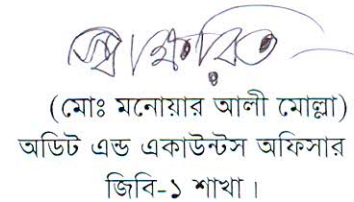 স্বাক্ষরিত
(মোঃ মনোয়ার আলী মোল্লা)
অডিট এন্ড একাউন্টস অফিসার
জিবি-১ শাখা।